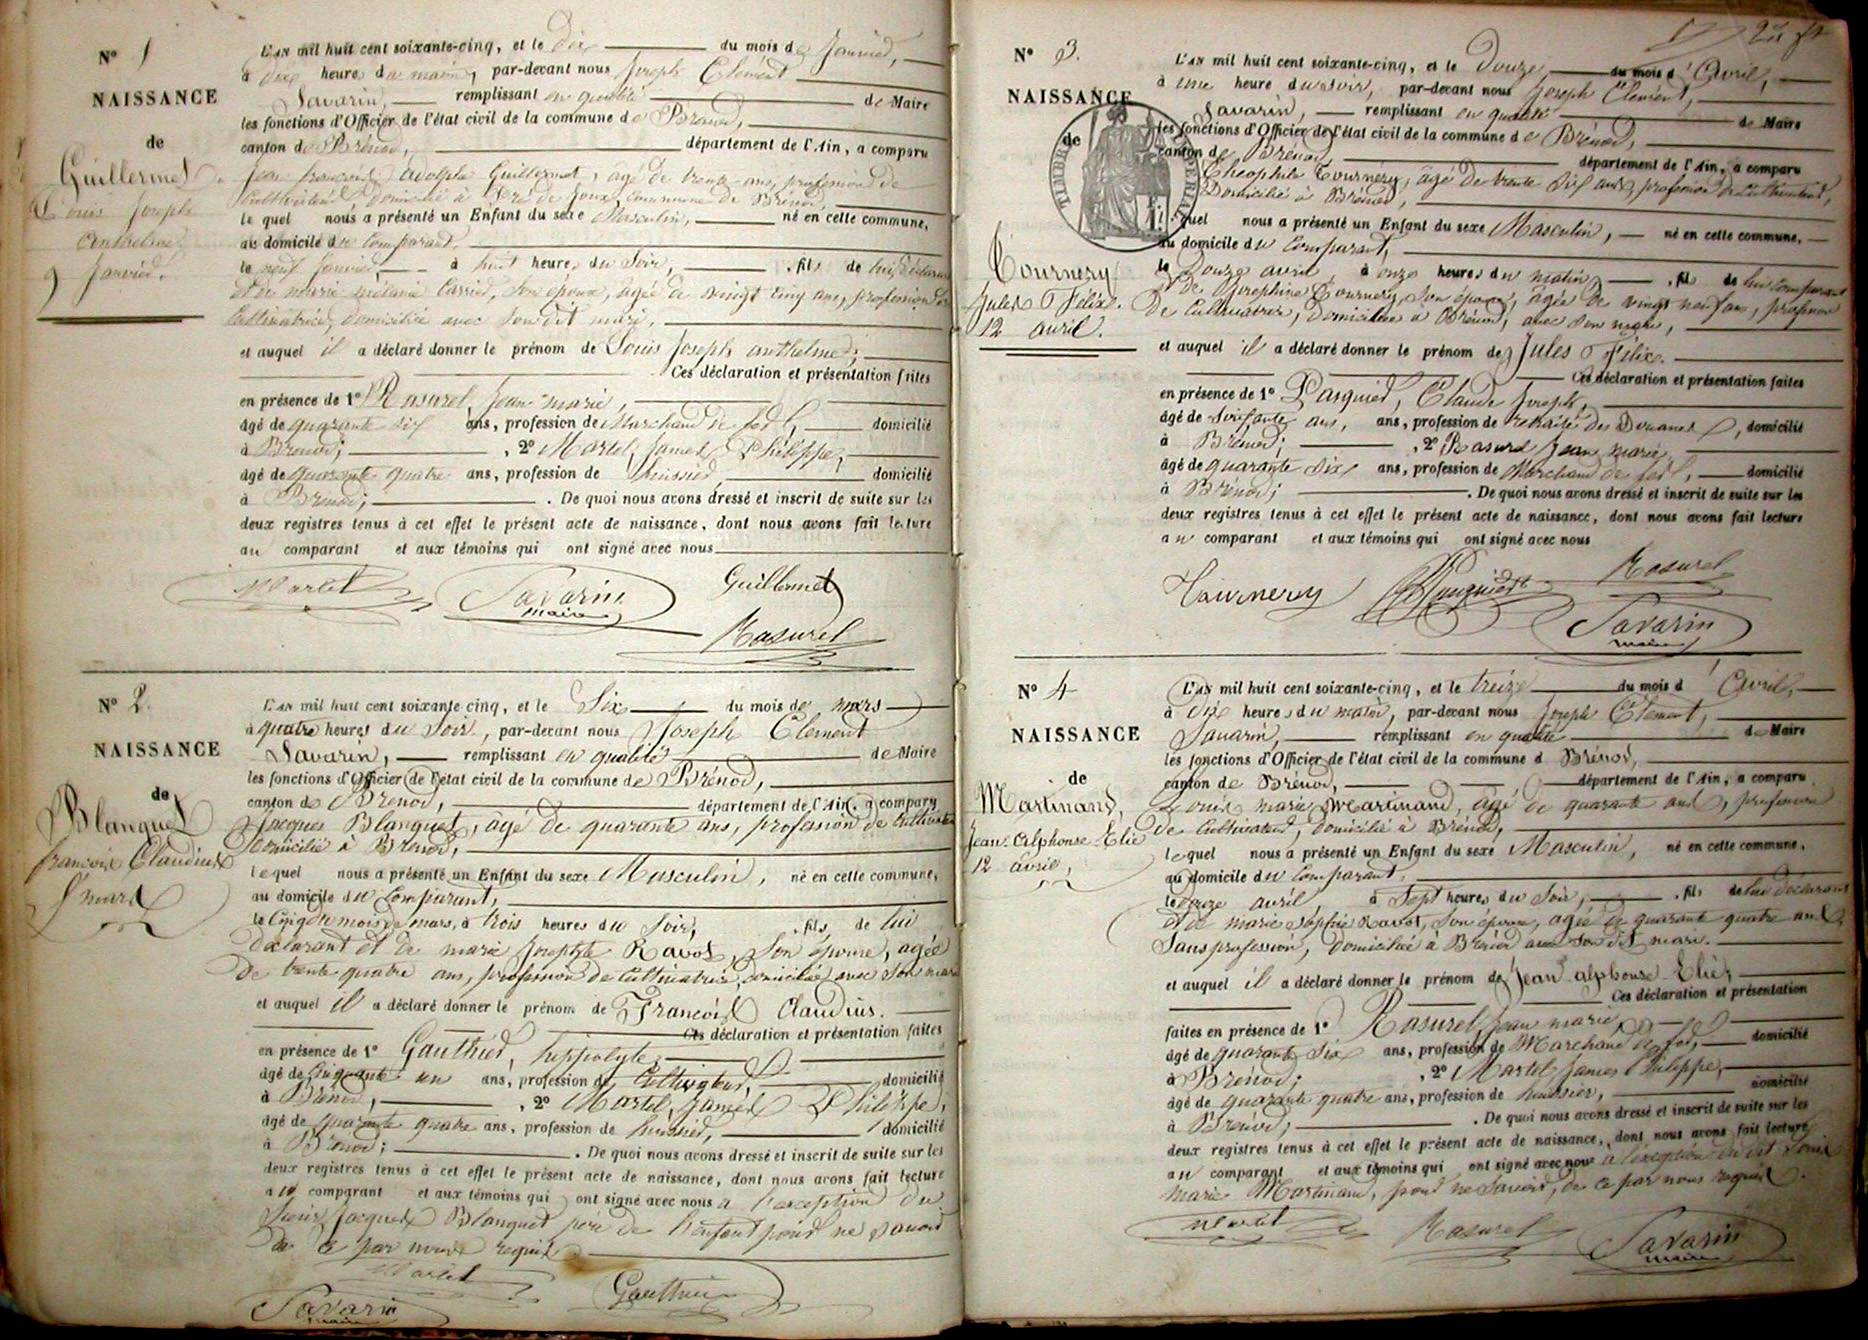 N° 1
NAISSANCE
de
Guillermet
Louis Joseph
anthelme
9 Janvier.
L'AN mil huit cent soixante-cinq, et le dix du mois de Janvier,
à dix heures du matin, par-devant nous Joseph Clément
Savarin, remplissant en qualité de Maire
les fonctions d'Officier de l'état civil de la commune de Brénod,
canton de Brénod, département de l'Ain, a comparu
Jean françois Adolphe Guillermet, agé de trente ans, profession de
Cultivateur, domicilié à Pré de Joux, commune de Brénod,
le quel nous a présenté un Enfant du sexe Masculin, né en cette commune,
au domicile du Comparant,
le neuf Janvier, à huit heures du Soir, fils de lui déclarant
et de marie mélanie Carrier, Son épouse, agée de vingt cinq ans, profession de
Cultivatrice, domiciliée avec Son dit mari,
et auquel il a déclaré donner le prénom de Louis Joseph anthelme;
Ces déclaration et présentation faites
en présence de 1° Rasurel, Jean marie,
âgé de quarante six ans, profession de Marchand de fer, domicilié
à Brénod; , 2° Martel James Philippe,
âgé de quarante quatre ans, profession de huissier, domicilié
à Brénod; . De quoi nous avons dressé et inscrit de suite sur les
deux registres tenus à cet effet le présent acte de naissance, dont nous avons fait lecture
au comparant et aux témoins qui ont signé avec nous
Martel Savarin Guillermet
maire
Rasurel
N° 2.
NAISSANCE
de
Blanquet
françois Claudius
5 mars
L'AN mil huit cent soixante-cinq, et le Six du mois de mars
à quatre heures du Soir, par-devant nous Joseph Clément
Savarin, remplissant en qualité de Maire
les fonctions d'Officier de l'état civil de la commune de Brénod,
canton de Brénod, département de l'Ain, a comparu
Jacques Blanquet, agé de quarante ans, profession de Cultivateur
domicilié à Brénod,
lequel nous a présenté un Enfant du sexe Masculin, né en cette commune,
au domicile du Comparant,
le Cinq du mois de mars, à trois heures du Soir, fils de lui
déclarant et de marie Josephte Ravot, Son épouse, agée
de trente quatre ans, profession de Cultivatrice, domiciliée avec Son mari
et auquel il a déclaré donner le prénom de François Claudius.
Ces déclaration et présentation faites
en présence de 1° Gauthier, hippolyte,
âgé de Cinquante un ans, profession de Cultivateur, domicilié
à Brénod, , 2° Martel, James Philippe,
âgé de quarante quatre ans, profession de huissier, domicilié
à Brénod; . De quoi nous avons dressé et inscrit de suite sur les
deux registres tenus à cet effet le présent acte de naissance, dont nous avons fait lecture
au comparant et aux témoins qui ont signé avec nous a l'exception du
Sieur Jacques Blanquet père de l'enfant pour ne Savoir
de ce par nous requis.
Martel
Savarin Gauthier
maire
N° 3.
NAISSANCE
de
Tournery
Jules Félix.
12 avril.
TIMBRE IMPERIAL
L'AN mil huit cent soixante-cinq, et le douze du mois d'Avril,
à une heure du soir, par-devant nous Joseph Clément,
Savarin, remplissant en qualité de Maire
les fonctions d'Officier de l'état civil de la commune de Brénod,
canton de Brénod, département de l'Ain, a comparu
Théophile Tournery, agé de trente six ans, profession de Cultivateur,
Domicilié à Brénod,
lequel nous a présenté un Enfant du sexe Masculin, né en cette commune,
au domicile du Comparant,
le Douze avril, à onze heures du matin, fils de lui Comparant
et de Josephine Tournery, Son épouse, agée de vingt neuf ans, profession
de Cultivatrice, domiciliée à Brénod, avec Son mari,
et auquel il a déclaré donner le prénom de Jules Félix.
Ces déclaration et présentation faites
en présence de 1° Pasquier, Claude Joseph,
âgé de Soixante ans, ans, profession de retraité des Douanes, domicilié
à Brénod; , 2° Rasurel Jean marie
âgé de quarante Six ans, profession de Marchand de fer, domicilié
à Brénod; . De quoi nous avons dressé et inscrit de suite sur les
deux registres tenus à cet effet le présent acte de naissance, dont nous avons fait lecture
au comparant et aux témoins qui ont signé avec nous
Tournery Pasquier Rasurel
Savarin
maire
N° 4
NAISSANCE
de
Martinand,
Jean Alphonse Elie
12 avril,
L'AN mil huit cent soixante-cinq, et le treize du mois d'Avril,
à dix heures du matin, par-devant nous Joseph Clément,
Savarin, remplissant en qualité de Maire
les fonctions d'Officier de l'état civil de la commune d Brénod,
canton de Brénod, département de l'Ain, a comparu
Louis marie Martinand, agé de quarante ans, profession
de Cultivateur, domicilié à Brénod,
lequel nous a présenté un Enfant du sexe Masculin, né en cette commune,
au domicile du Comparant,
le douze avril, à Sept heures du Soir, fils de lui déclarant
et de marie Sophie Ravot, Son épouse, agée de quarante quatre ans,
Sans profession, domiciliée à Brénod avec Son dit mari.
et auquel il a déclaré donner le prénom de Jean alphonse Elie,
Ces déclaration et présentation
faites en présence de 1° Rasurel, Jean marie,
âgé de quarante Six ans, profession de Marchand de fer, domicilié
à Brénod; , 2° Martel James Philippe,
âgé de quarante quatre ans, profession de huissier, domicilié
à Brénod; . De quoi nous avons dressé et inscrit de suite sur les
deux registres tenus à cet effet le présent acte de naissance, dont nous avons fait lecture
au comparant et aux témoins qui ont signé avec nous a l'exception du dit Louis
marie Martinand, pour ne Savoir, de ce par nous requis.
Martel Rasurel Savarin
maire